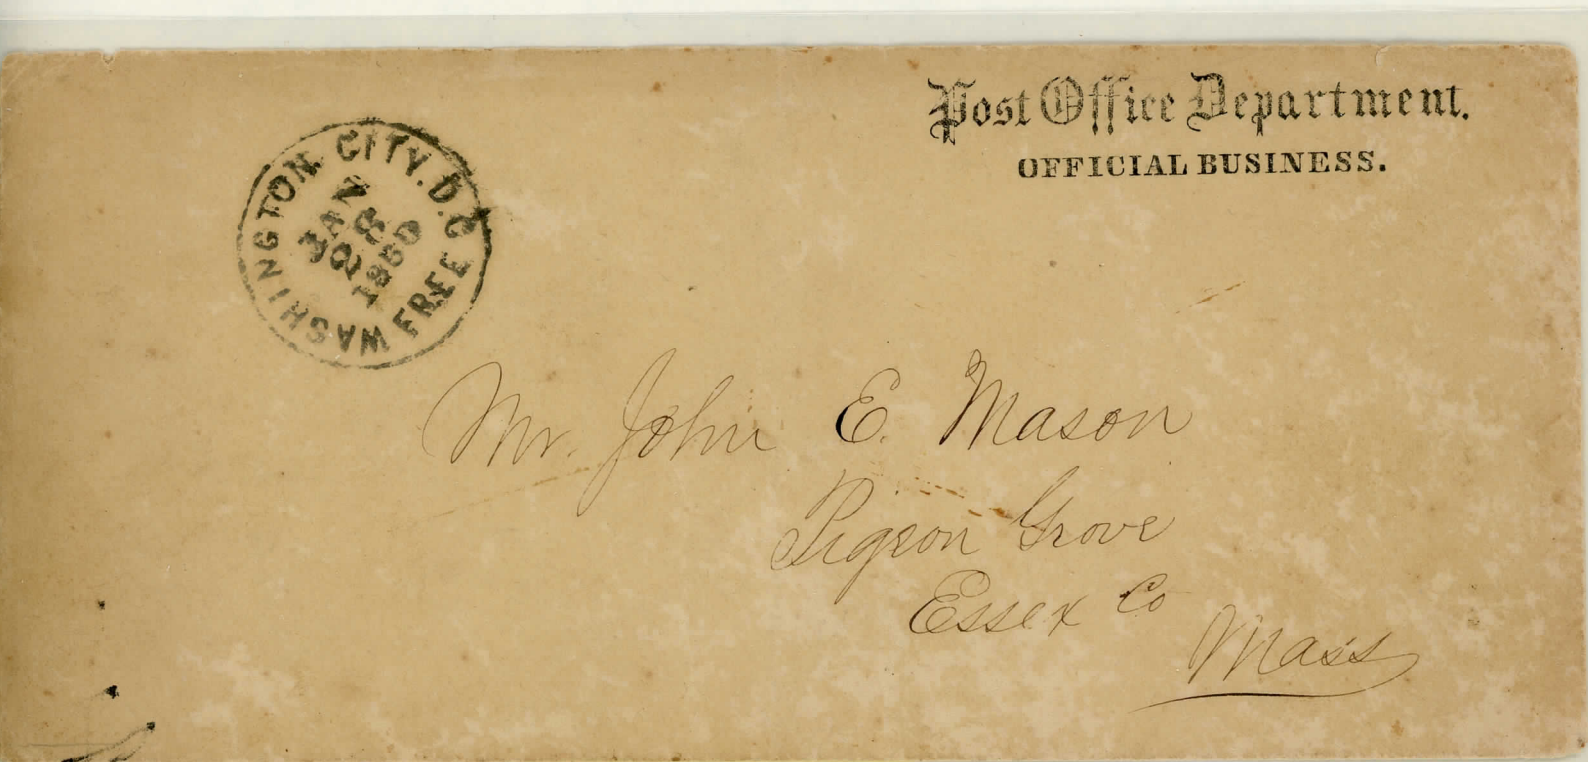 Post Office Department.
OFFICIAL BUSINESS.
WASHINGTON CITY. D.C.
FREE
JAN
28
1860
Mr. John E. Mason
Pigeon Grove
Essex Co
Mass